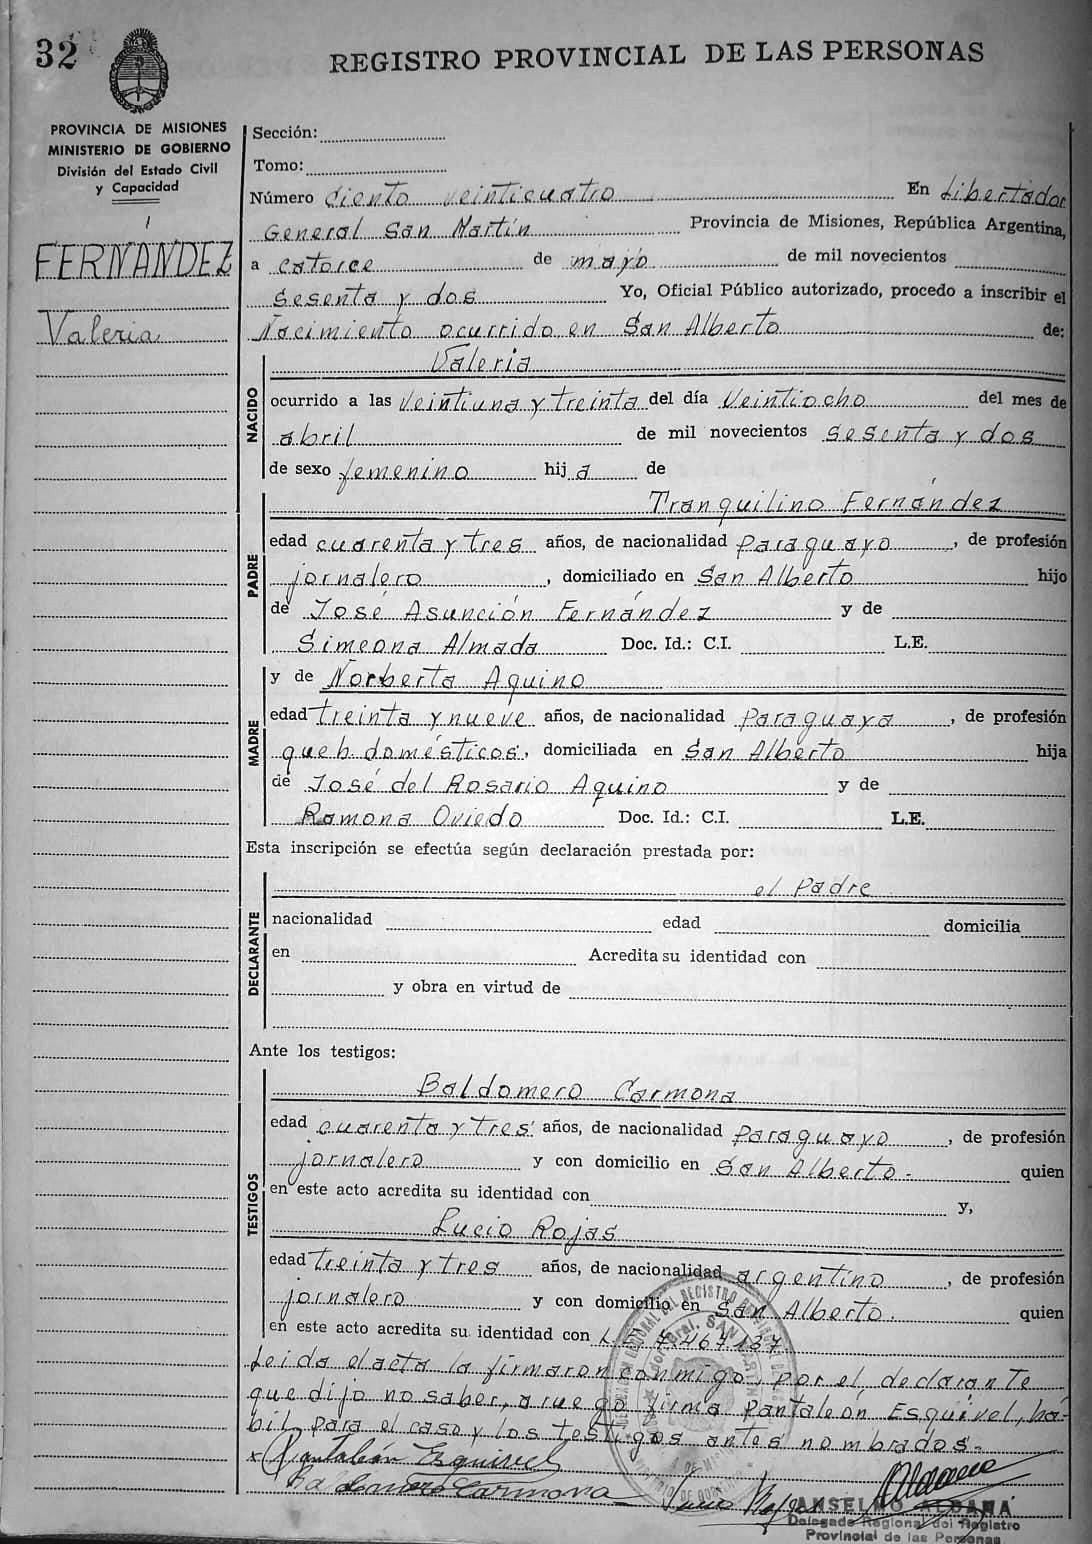 32
REGISTRO PROVINCIAL DE LAS PERSONAS
PROVINCIA DE MISIONES
MINISTERIO DE GOBIERNO
División del Estado Civil
y Capacidad
FERNANDEZ
Valeria
Sección:
Tomo:
Número Ciento veinticuatro En Libertador
General San Martín Provincia de Misiones, República Argentina,
a catorce de mayo de mil novecientos
sesenta y dos Yo, Oficial Público autorizado, procedo a inscribir el
Nacimiento ocurrido en San Alberto de:
NACIDO
Valeria
ocurrido a las veintiuna y treinta del día veintiocho del mes de
abril de mil novecientos sesenta y dos
de sexo femenino hij a de
PADRE
Tranquilino Fernández
edad cuarenta y tres años, de nacionalidad paraguayo, de profesión
jornalero, domiciliado en San Alberto hijo
de José Asunción Fernández y de
Simeona Almada Doc. Id.: C.I. L.E.
MADRE
y de Norberta Aquino
edad treinta y nueve años, de nacionalidad paraguaya, de profesión
queh. domésticos, domiciliada en San Alberto hija
de José del Rosario Aquino y de
Ramona Oviedo Doc. Id.: C.I. L.E.
Esta inscripción se efectúa según declaración prestada por:
DECLARANTE
el Padre
nacionalidad edad domicilia
en Acredita su identidad con
y obra en virtud de
Ante los testigos:
TESTIGOS
Baldomero Carmona
edad cuarenta y tres años, de nacionalidad paraguayo, de profesión
jornalero y con domicilio en San Alberto.- quien
en este acto acredita su identidad con y,
Lucio Rojas
edad treinta y tres años, de nacionalidad argentino, de profesión
jornalero y con domicilio en San Alberto. quien
en este acto acredita su identidad con 7.467.137
Leida el acta la firmaron conmigo, por el declarante
que dijo no saber, a ruego firma Pantaleón Esquivel, há-
bil para el caso y los testigos antes nombrados.-
x Pantaleón Esquivel
Baldomero Carmona Lucio Rojas
ANSELMO ALDANA
Delegado Regional del Registro
Provincial de las Personas